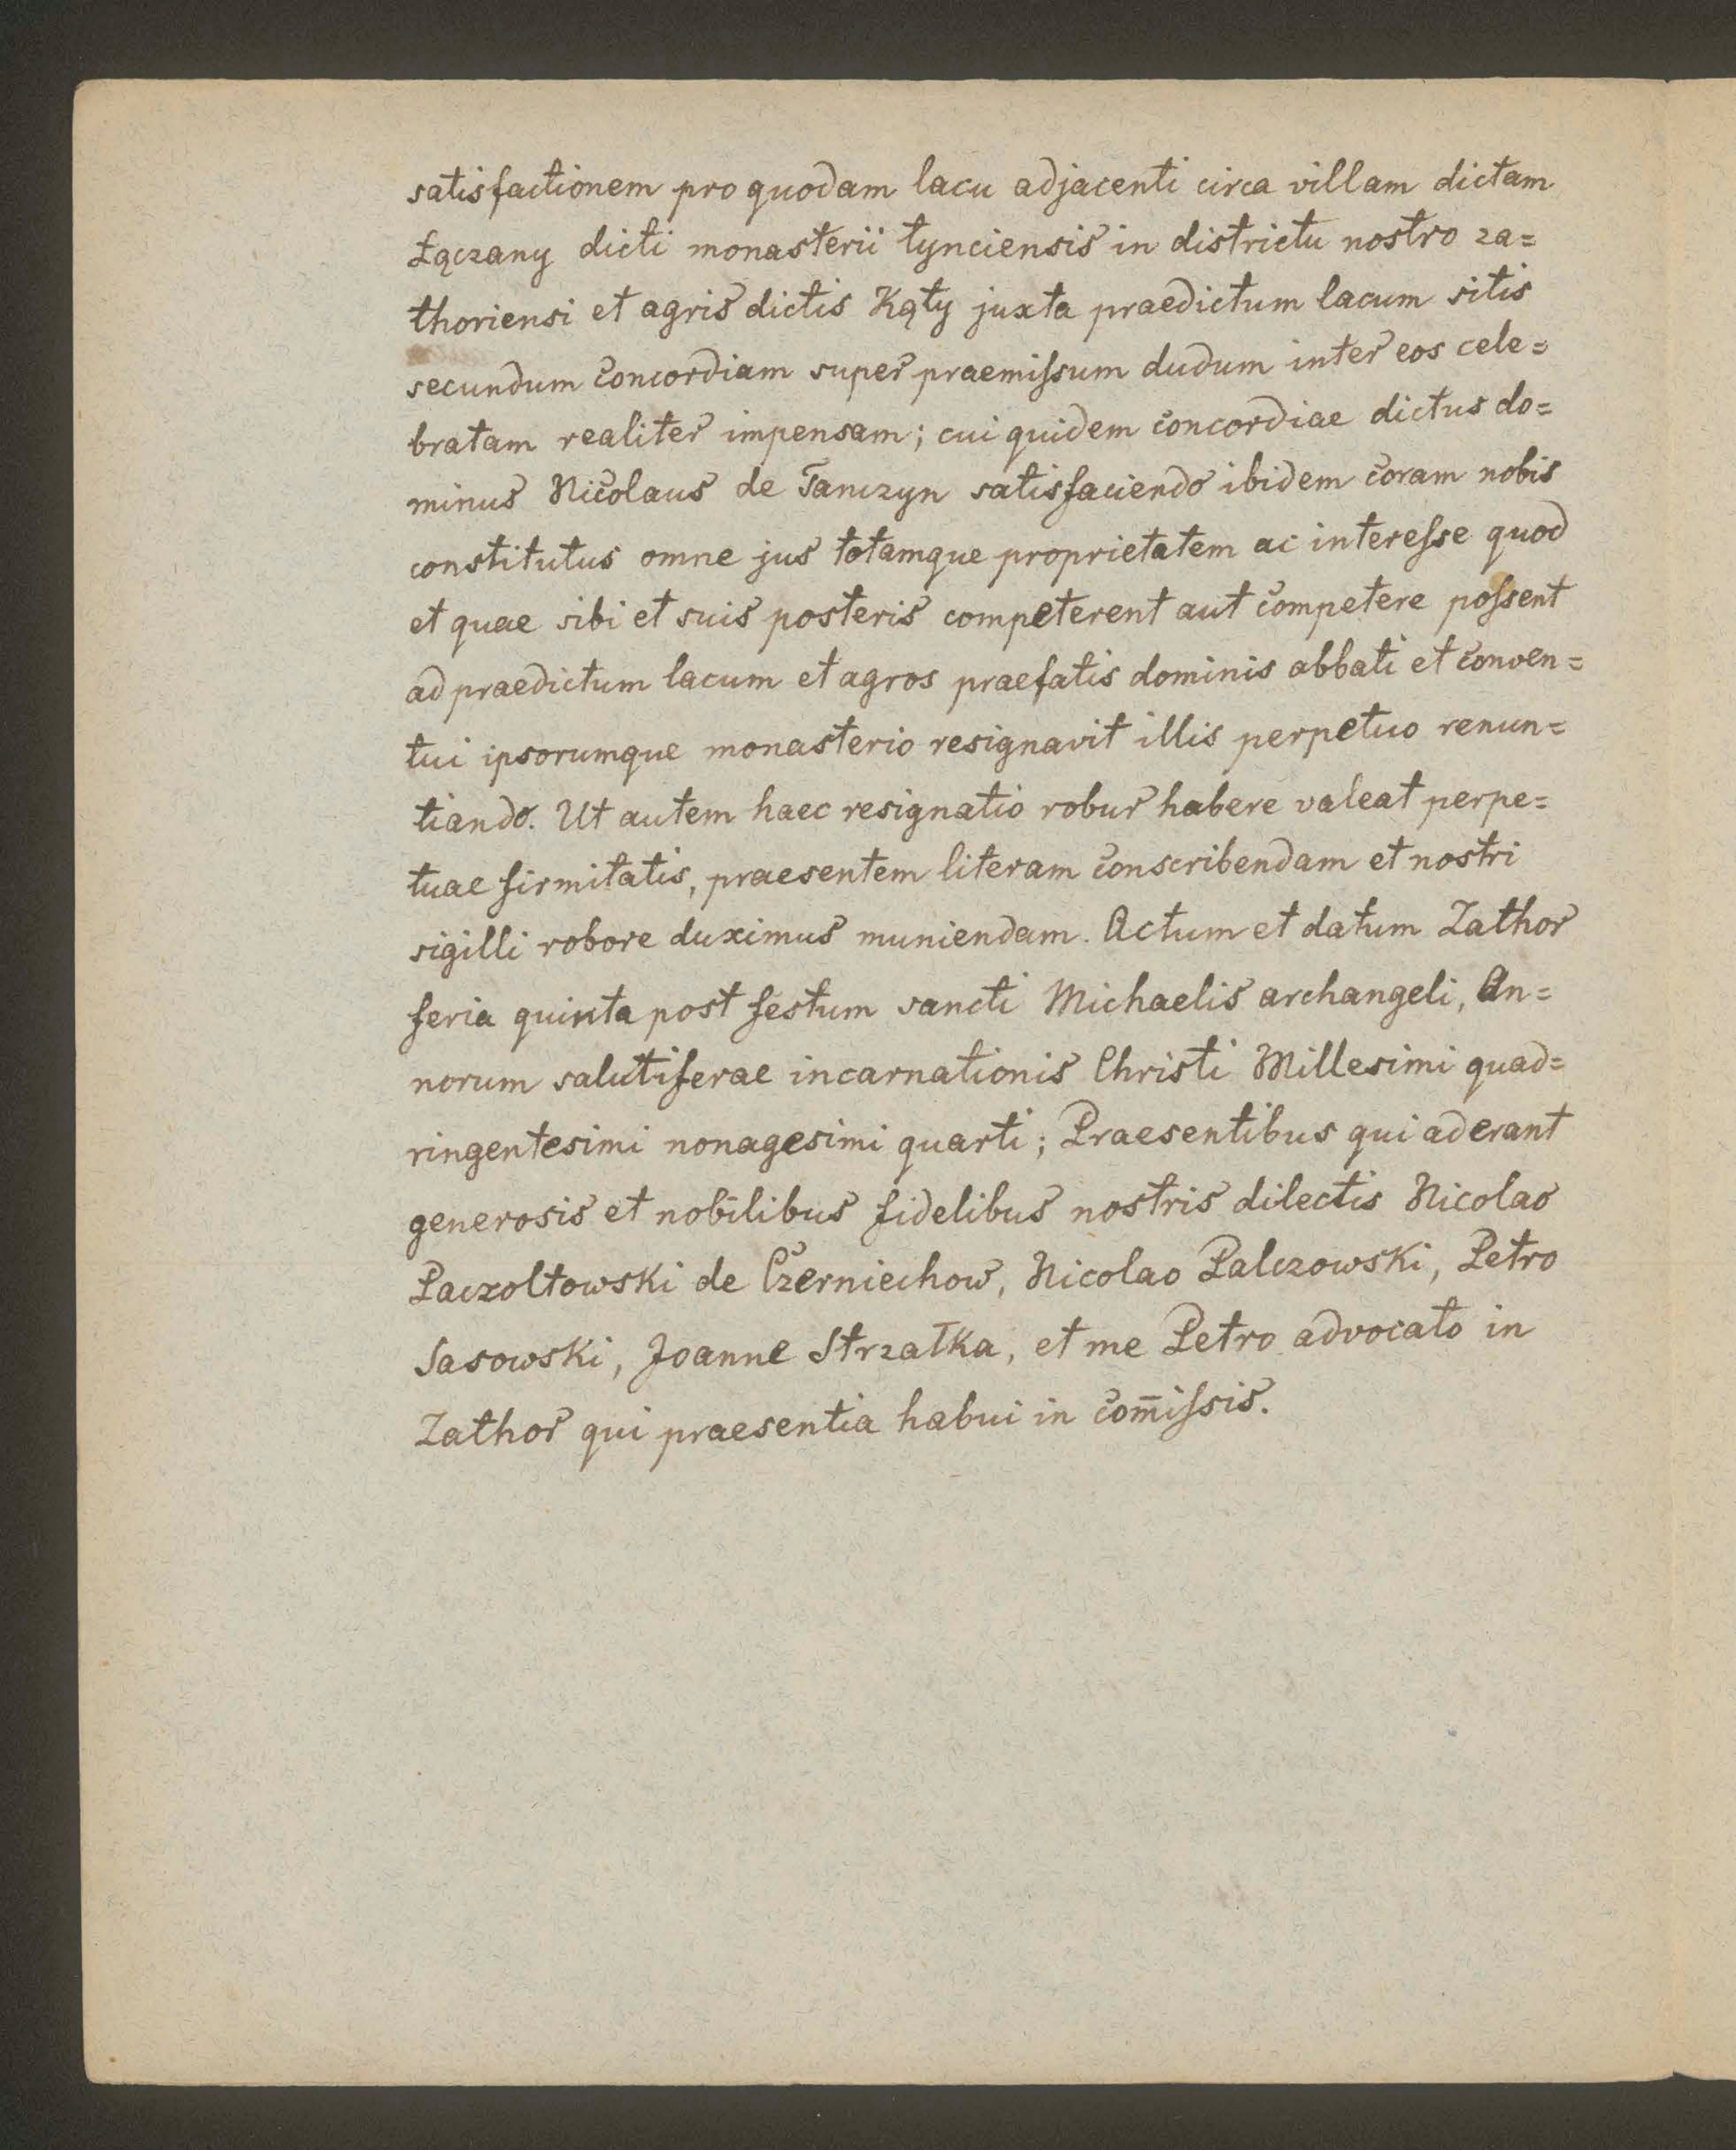 satisfactionem pro quodam lacu adjacenti circa villam dictam
Łączany dicti monasterii tynciensis in districtu nostro za=
thoriensi et agris dictis Kąty juxta praedictum lacum sitis
secundum concordiam super praemiſsum dudum inter eos cele=
bratam realiter impensam; cui quidem concordiae dictus do=
minus Nicolaus de Tanczyn satisfaciendo ibidem coram nobis
constitutus omne jus totamque proprietatem ac intereſse quod
et quae sibi et suis posteris competerent aut competere poſsent
ad praedictum lacum et agros praefatis dominis abbati et conven=
tui ipsorumque monasterio resignavit illis perpetuo renun=
tiando. Ut autem haec resignatio robur habere valeat perpe=
tuae firmitatis, praesentem literam conscribendam et nostri
sigilli robore duximus muniendam. Actum et datum Zathor
feria quinta post festum sancti Michaelis archangeli, An=
norum salutiferae incarnationis Christi Millesimi quad=
ringentesimi nonagesimi quarti; Praesentibus qui aderant
generosis et nobilibus fidelibus nostris dilectis Nicolao
Paczoltowski de Czerniechow, Nicolao Palczowski, Petro
Sasowski, Joanne Strzałka, et me Petro advocato in
Zathor qui praesentia habui in com̄iſsis.